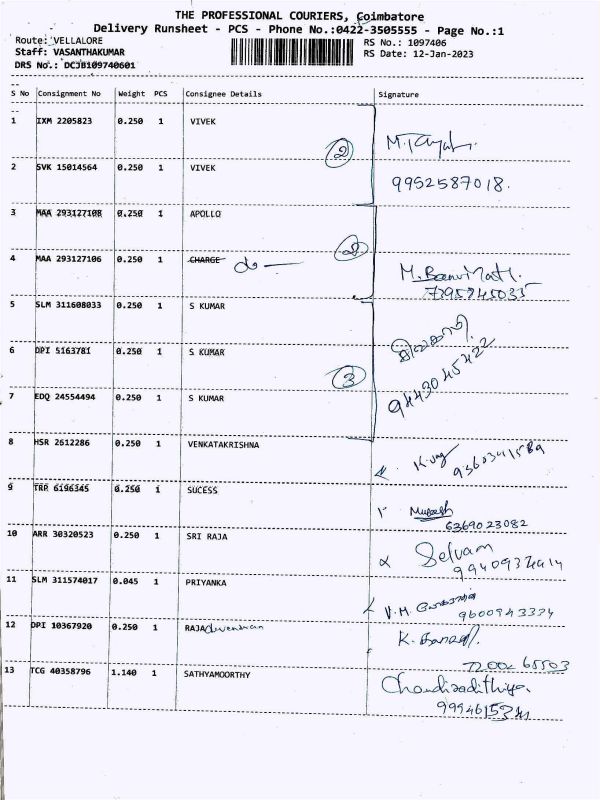 THE PROFESSIONAL COURIERS, Coimbatore
Delivery Runsheet - PCS - Phone No.:0422-3505555 - Page No.:1
Route: VELLALORE RS No.: 1097406
Staff: VASANTHAKUMAR RS Date: 12-Jan-2023
DRS No.: DCJB109740601
S No Consignment No Weight PCS Consignee Details Signature
1 IXM 2205823 0.250 1 VIVEK
2
2 SVK 15014564 0.250 1 VIVEK
9952587018.
3 MAA 293127108 0.250 1 APOLLO
2
4 MAA 293127106 0.250 1 CHARGE
5 SLM 311608033 0.250 1 S KUMAR
6 DPI 5163781 0.250 1 S KUMAR
9443045422
3
7 EDQ 24554494 0.250 1 S KUMAR
8 HSR 2612286 0.250 1 VENKATAKRISHNA
9 TRR 6196345 0.250 1 SUCESS
6369023082
10 ARR 30320523 0.250 1 SRI RAJA
Selvam
11 SLM 311574017 0.045 1 PRIYANKA
9600943334
12 DPI 10367920 0.250 1 RAJA
72002 65503
13 TCG 40358796 1.140 1 SATHYAMOORTHY